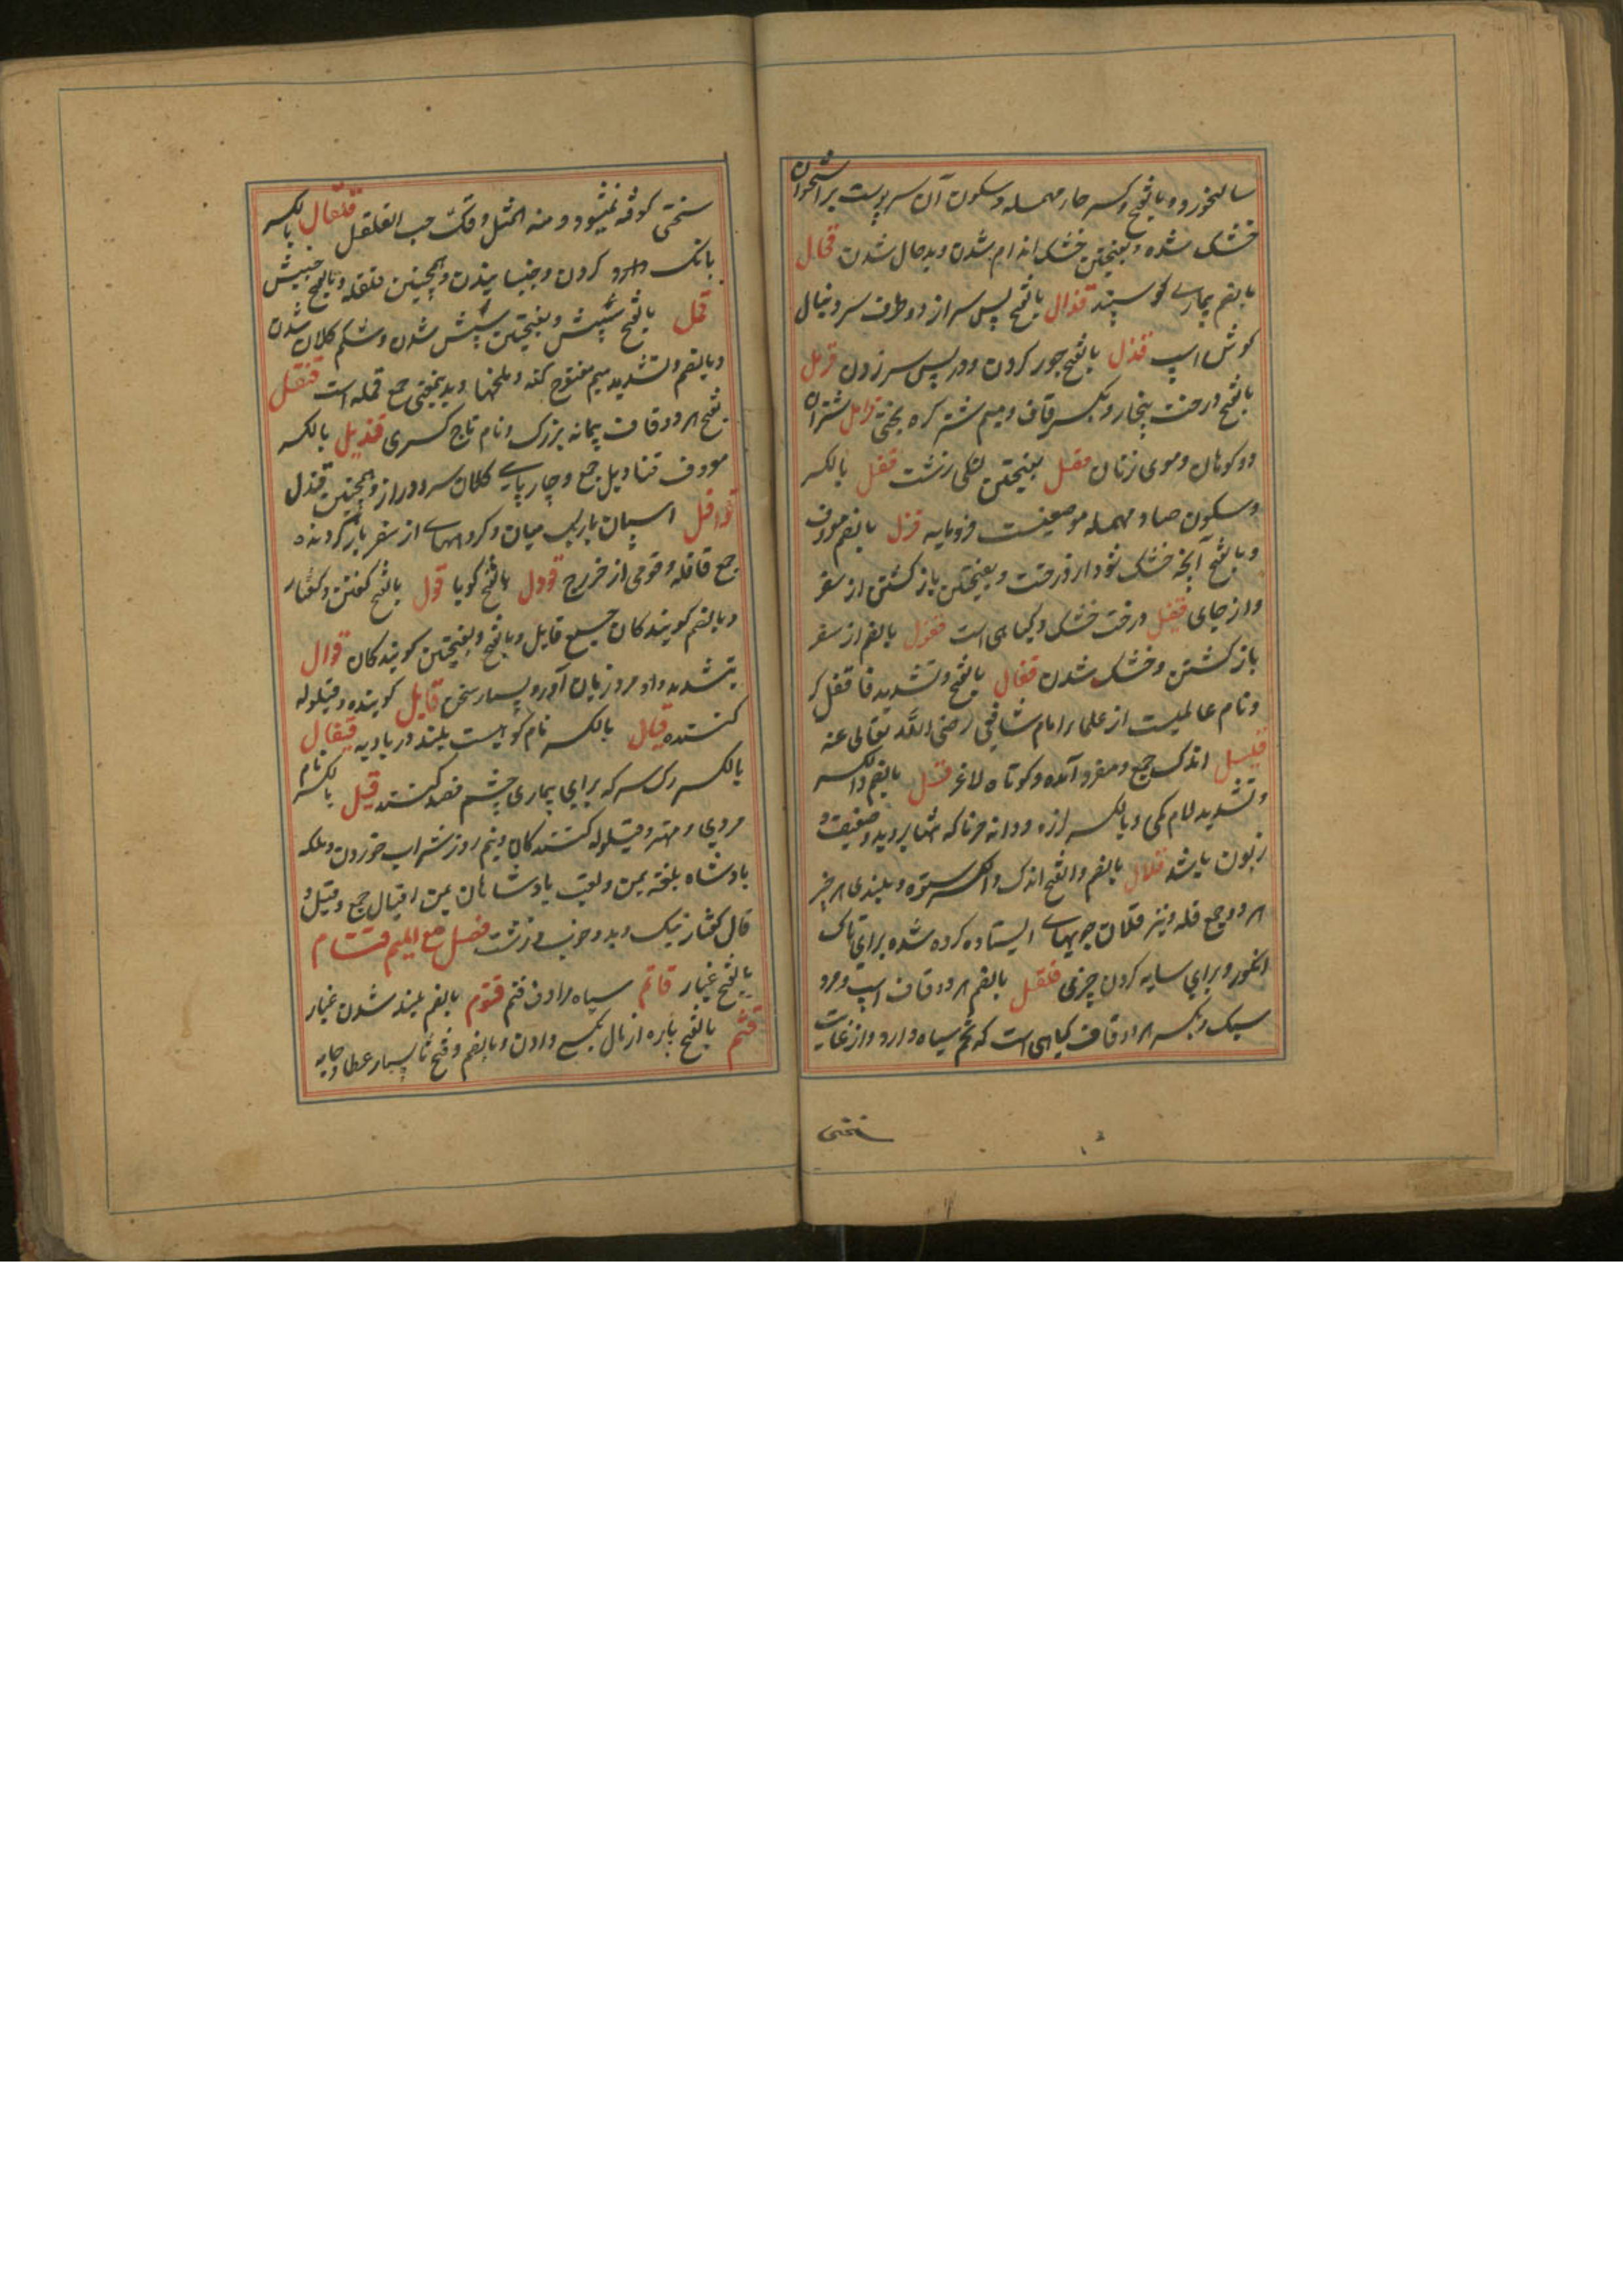 سالخورده و بالفتح و کسر حار مهمله و سکون آن سر پوست بر استخوان
خشک شده و بفتحتین خشک اندام شدن و بدحال شدن قحال
بالضم بیماری کوسپند قذال بالفتح پس سر از دو طرف سر دنبال
کوش اسپ قذل بالفتح جور کردن و در پس سر زدن قرمل
بالفتح درخت بیخار و بکسر قاف و میم شتر کره بختی قرامل شتران
دو کوهان و موی زنان قفل بالکسر
و سکون صاد مهمله موضعیست فرومایه قزل بالضم معروف
و بالفتح آنچه خشک شود از درخت و بفتحتین باز کشتن از سفر
و از جای قفیل درخت خشک و کیاهی است قفول بالضم از سفر
باز کشتن و خشک شدن قفال بالفتح و تشدید فا قفل کر
و نام عالمیست از علماء امام شافعی رضی الله تعالی عنه
قلیل اندک جمع و مفرد آمده و کوتاه لاغر قل بالضم و الکسر
و تشدید لام کمی و بالکسر لرزه و دانه خرما که تنها بروید و ضعیف و
زبون باشد قلال بالضم و الفتح اندک و الکسر ستوه و بلندی هر چیز
هر دو جمع قله و نیز قلال چوبهای ایستاده کرده شده برای تاک
انکور و برای سایه کردن چیزی قلقل بالضم هر دو قاف اسپ و مرد
سبک و بکسر هر دو قاف کیاهی است که تخم سیاه دارد و از غایت
سختی
سختی کوفته نمیشود و منه المثل دقک حب القلقل قلقال بالکسر
بانک و آرد کردن و جنبانیدن و همچنین قلقله و بالفتح جنبش
قمل بالفتح شپش و بفتحتین شپش شدن و شکم کلان شدن
و بالضم و تشدید میم مفتوح کنه و ملخها و بدینمعنی جمع قمله است قنقل
بفتح هر دو قاف پیمانه بزرک و نام تاج کسری قندیل بالکسر
معروف قنادیل جمع و چارپایی کلان سر و دراز و همچنین قندل
قوافل اسپان باریک میان و کروههای از سفر باز کردنده
جمع قافله و قومی از خزرج قوول بالفتح کویا قول بالفتح کفتن و کفتار
و بالضم کویندکان جمع قایل و بالفتح و بفتحتین کویندکان قوال
بتشدید واو مرد زبان آور و بسیار سخن قایل کوینده و قیلوله
کننده قیال بالکسر نام کوهیست بلند در بادیه قیفال
بالکسر رک سر که برای بیماری چشم فصد کنند قیل بالکسر نام
مردی و مهتر و قیلوله کنندکان و نیم روز شراب خوردن و ملکه
بادشاه بلغه یمن و لقب بادشاهان یمن اقیال جمع و قیل و
قال کفتار نیک و بد و خوب و زشت فصل مع المیم قتام
بالفتح غبار قاتم سیاه مرادف قتم قتوم بالضم بلند شدن غبار
قثم بالفتح پاره از مال بکسی دادن و بالضم و فتح ثا بسیار عطا و جامه